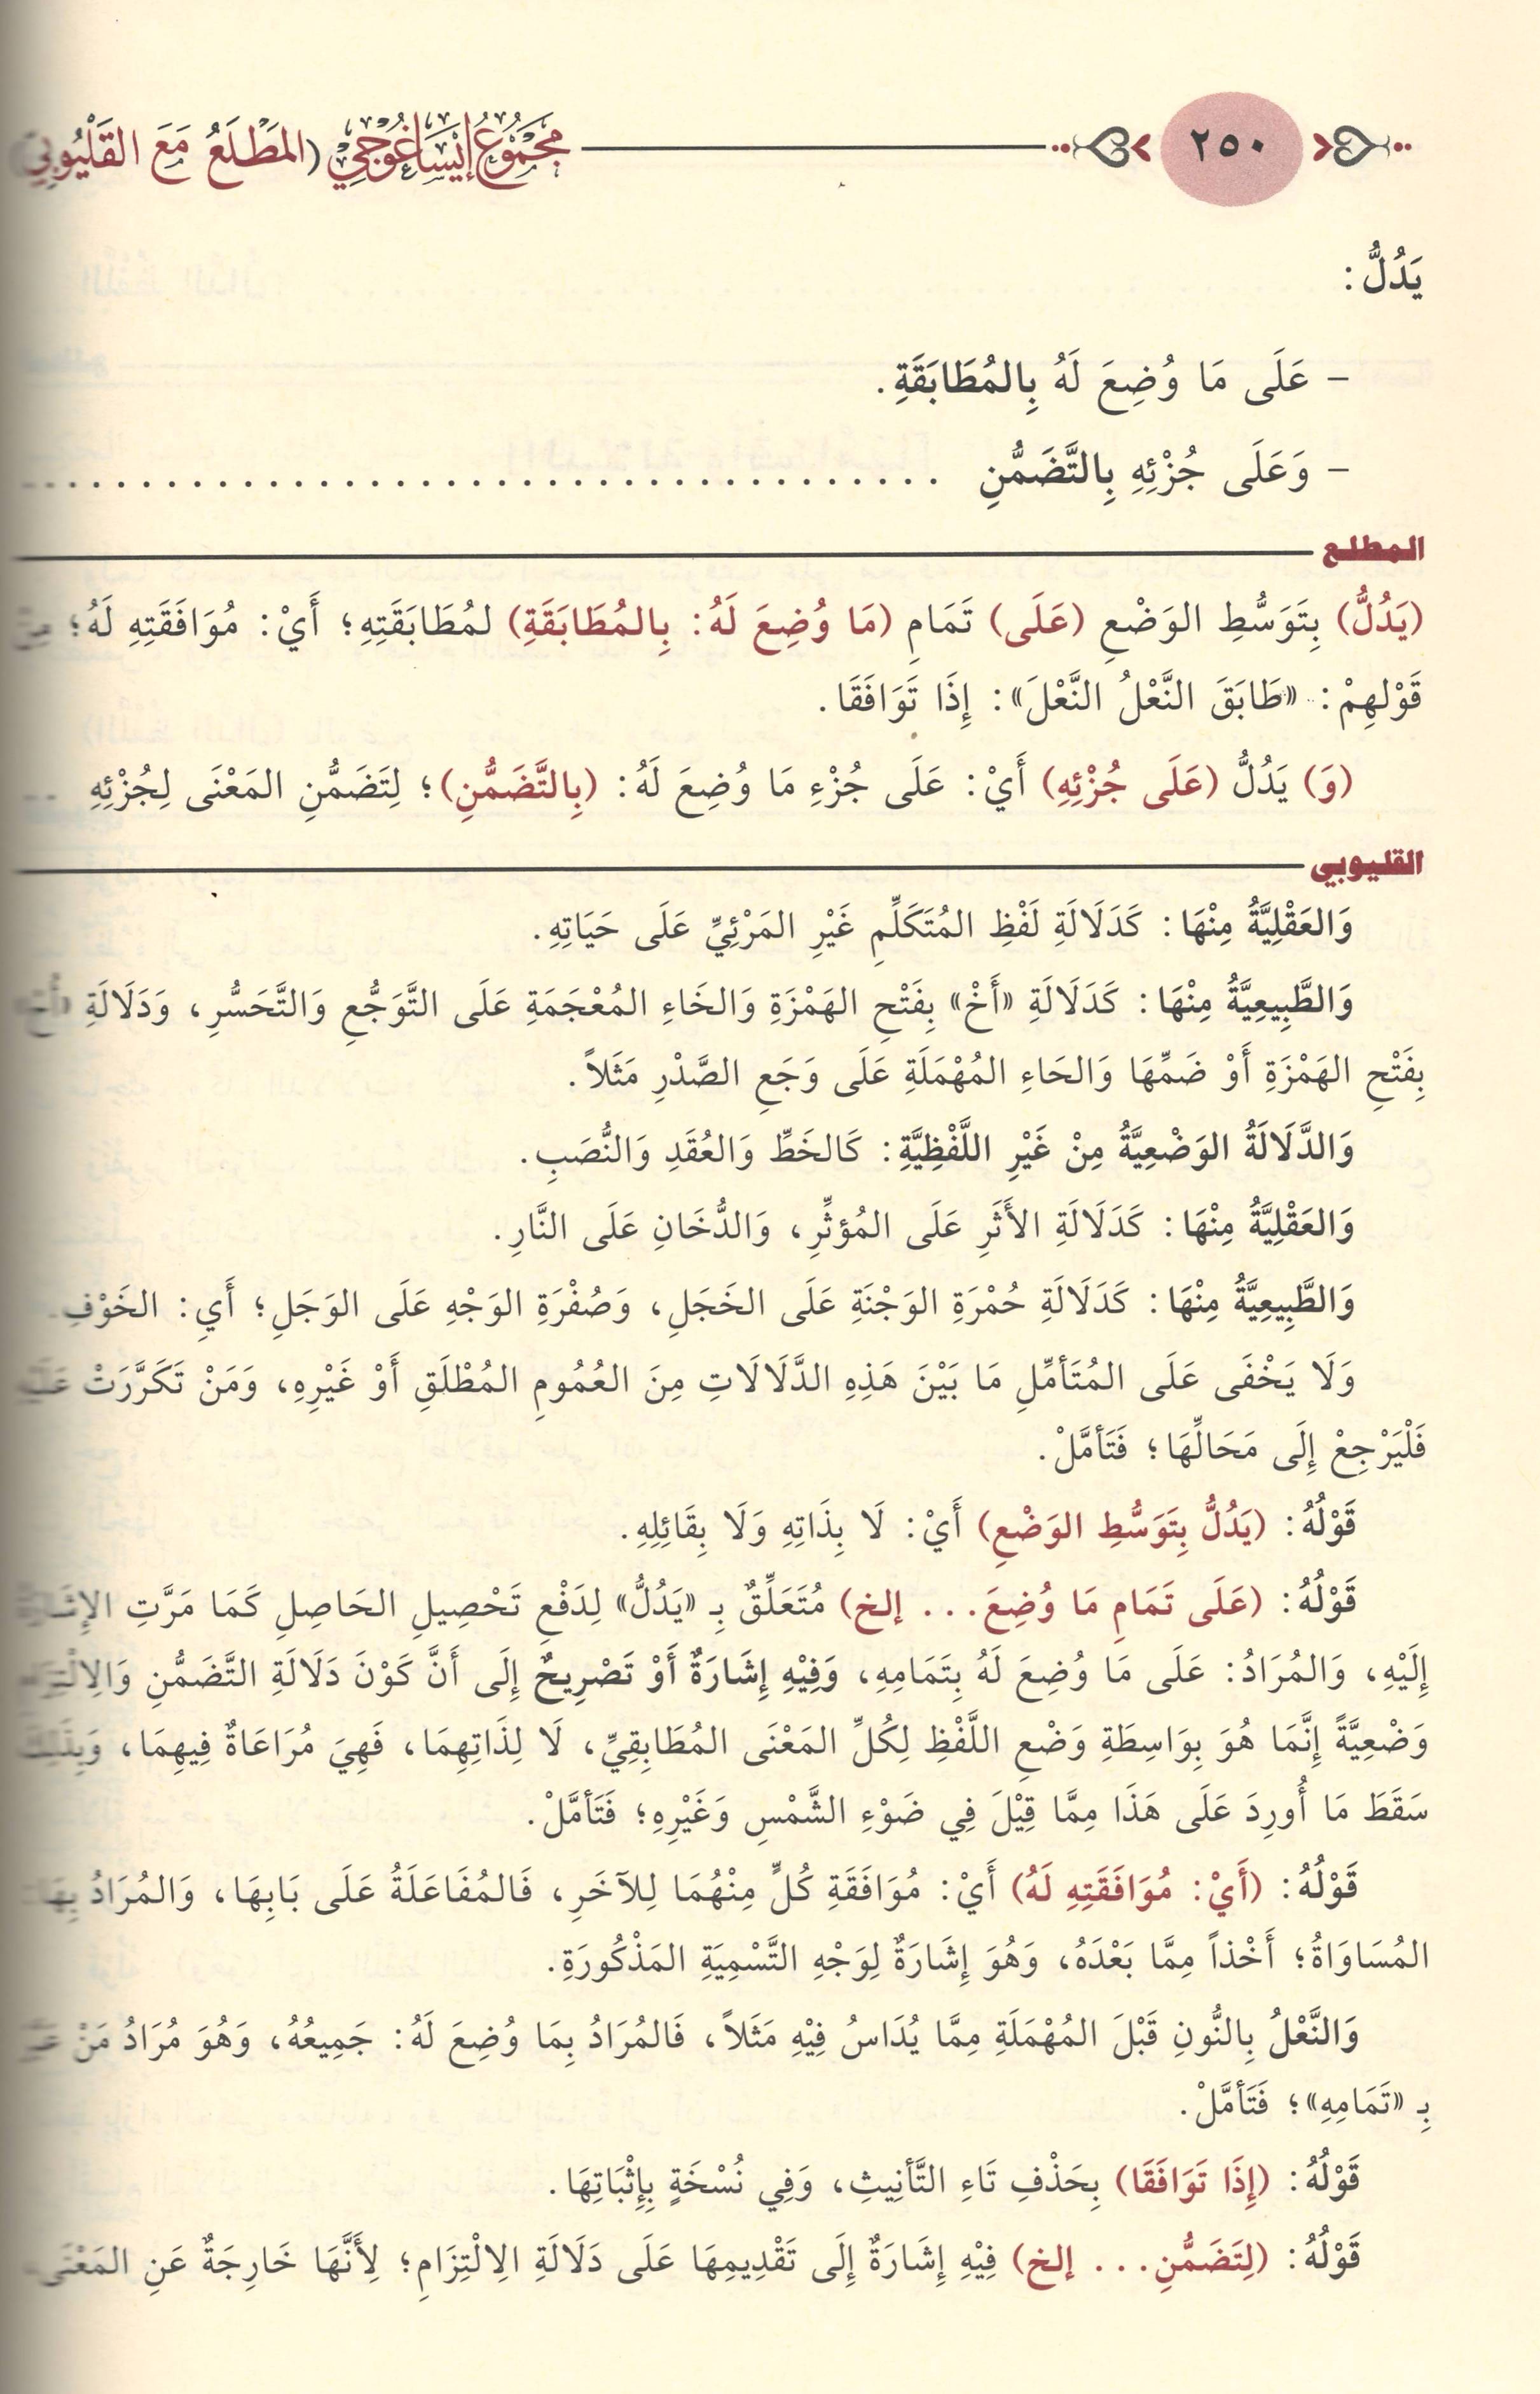 مَجْمُوعُ إِيسَاغُوجِي (المَطْلَعُ مَعَ القَلْيُوبِي
٢٥٠
يَدُلُّ:
- عَلَى مَا وُضِعَ لَهُ بِالمُطَابَقَةِ.
- وَعَلَى جُزْئِهِ بِالتَّضَمُّنِ ........................................
المطلع
(يَدُلُّ) بِتَوَسُّطِ الوَضْعِ (عَلَى) تَمَامِ (مَا وُضِعَ لَهُ: بِالمُطَابَقَةِ) لمُطَابَقَتِهِ؛ أَيْ: مُوَافَقَتِهِ لَهُ؛
قَوْلهِمْ: «طَابَقَ النَّعْلُ النَّعْلَ»: إِذَا تَوَافَقَا.
(وَ) يَدُلُّ (عَلَى جُزْئِهِ) أَيْ: عَلَى جُزْءِ مَا وُضِعَ لَهُ: (بِالتَّضَمُّنِ)؛ لِتَضَمُّنِ المَعْنَى لِجُزْئِهِ ..
القليوبي
وَالعَقْلِيَّةُ مِنْهَا: كَدَلَالَةِ لَفْظِ المُتَكَلِّمِ غَيْرِ المَرْئِيِّ عَلَى حَيَاتِهِ.
وَالطَّبِيعِيَّةُ مِنْهَا: كَدَلَالَةِ «أَخْ» بِفَتْحِ الهَمْزَةِ وَالخَاءِ المُعْجَمَةِ عَلَى التَّوَجُّعِ وَالتَّحَسُّرِ، وَدَلَالَةِ
بِفَتْحِ الهَمْزَةِ أَوْ ضَمِّهَا وَالحَاءِ المُهْمَلَةِ عَلَى وَجَعِ الصَّدْرِ مَثَلاً.
وَالدَّلَالَةُ الوَضْعِيَّةُ مِنْ غَيْرِ اللَّفْظِيَّةِ: كَالخَطِّ وَالعُقَدِ وَالنُّصَبِ.
وَالعَقْلِيَّةُ مِنْهَا: كَدَلَالَةِ الأَثَرِ عَلَى المُؤثِّرِ، وَالدُّخَانِ عَلَى النَّارِ.
وَالطَّبِيعِيَّةُ مِنْهَا: كَدَلَالَةِ حُمْرَةِ الوَجْنَةِ عَلَى الخَجَلِ، وَصُفْرَةِ الوَجْهِ عَلَى الوَجَلِ؛ أَيِ: الخَوْفِ.
وَلَا يَخْفَى عَلَى المُتَأمِّلِ مَا بَيْنَ هَذِهِ الدَّلَالَاتِ مِنَ العُمُومِ المُطْلَقِ أَوْ غَيْرِهِ، وَمَنْ تَكَرَّرَتْ
فَلْيَرْجِعْ إِلَى مَحَالِّهَا؛ فَتَأمَّلْ.
قَوْلُهُ: (يَدُلُّ بِتَوَسُّطِ الوَضْعِ) أَيْ: لَا بِذَاتِهِ وَلَا بِقَائِلِهِ.
قَوْلُهُ: (عَلَى تَمَامِ مَا وُضِعَ... إلخ) مُتَعَلِّقٌ بِـ «يَدُلُّ» لِدَفْعِ تَحْصِيلِ الحَاصِلِ كَمَا مَرَّتِ
إِلَيْهِ، وَالمُرَادُ: عَلَى مَا وُضِعَ لَهُ بِتَمَامِهِ، وَفِيْهِ إِشَارَةٌ أَوْ تَصْرِيحٌ إِلَى أَنَّ كَوْنَ دَلَالَةِ التَّضَمُّنِ
وَضْعِيَّةً إِنَّمَا هُوَ بِوَاسِطَةِ وَضْعِ اللَّفْظِ لِكُلِّ المَعْنَى المُطَابِقِيِّ، لَا لِذَاتِهِمَا، فَهِيَ مُرَاعَاةٌ فِيهِمَا،
سَقَطَ مَا أُورِدَ عَلَى هَذَا مِمَّا قِيْلَ فِي ضَوْءِ الشَّمْسِ وَغَيْرِهِ؛ فَتَأمَّلْ.
قَوْلُهُ: (أَيْ: مُوَافَقَتِهِ لَهُ) أَيْ: مُوَافَقَةِ كُلٍّ مِنْهُمَا لِلآخَرِ، فَالمُفَاعَلَةُ عَلَى بَابِهَا، وَالمُرَادُ بِهَا
المُسَاوَاةُ؛ أَخْذاً مِمَّا بَعْدَهُ، وَهُوَ إِشَارَةٌ لِوَجْهِ التَّسْمِيَةِ المَذْكُورَةِ.
وَالنَّعْلُ بِالنُّونِ قَبْلَ المُهْمَلَةِ مِمَّا يُدَاسُ فِيْهِ مَثَلاً، فَالمُرَادُ بِمَا وُضِعَ لَهُ: جَمِيعُهُ، وَهُوَ مُرَادُ مَنْ
بِـ «تَمَامِهِ»؛ فَتَأمَّلْ.
قَوْلُهُ: (إِذَا تَوَافَقَا) بِحَذْفِ تَاءِ التَّأنِيثِ، وَفِي نُسْخَةٍ بِإِثْبَاتِهَا.
قَوْلُهُ: (لِتَضَمُّنِ... إلخ) فِيْهِ إِشَارَةٌ إِلَى تَقْدِيمِهَا عَلَى دَلَالَةِ الِالْتِزَامِ؛ لِأَنَّهَا خَارِجَةٌ عَنِ المَعْنَى